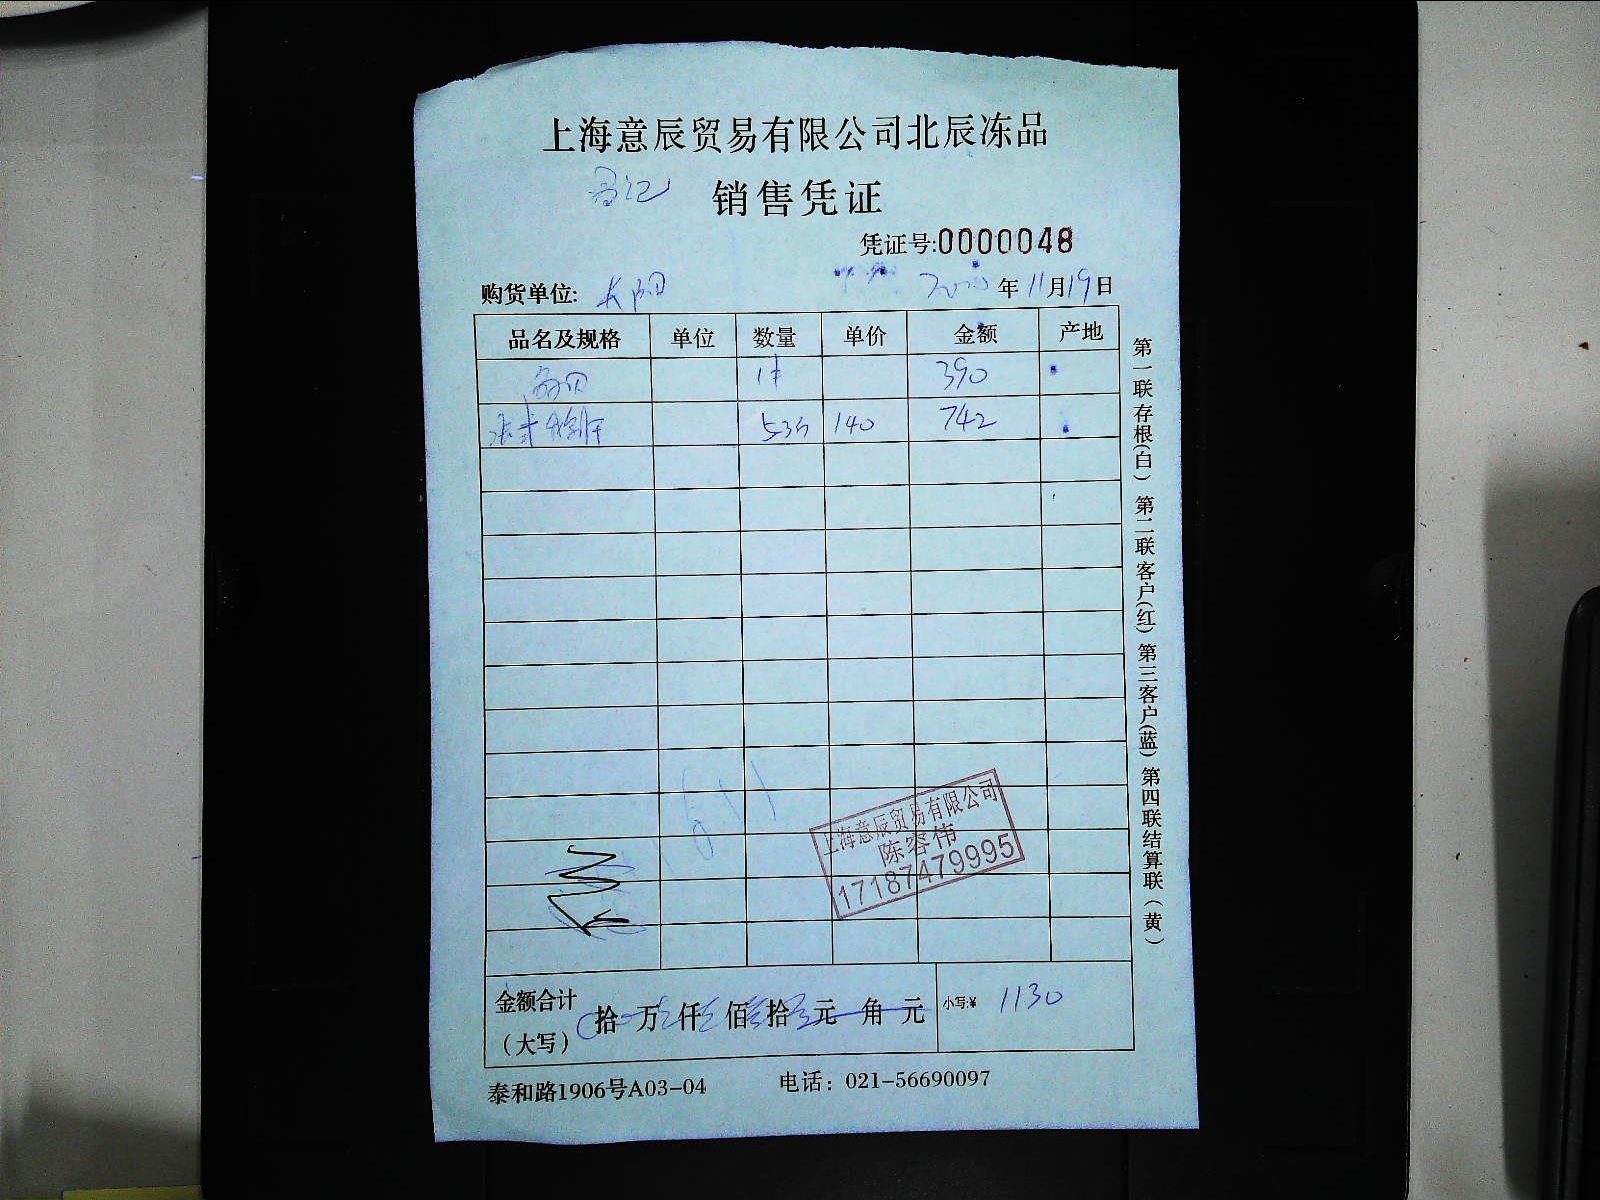 上海意辰贸易有限公司北辰冻品
销售凭证
凭证号:0000048
购货单位: 长阳 年11月19日
品名及规格 单位 数量 单价 金额 产地
1件 390
140 742
上海意辰贸易有限公司
陈容伟
17187479995
金额合计
(大写)
拾 万 仟 佰 拾 元 角 元
小写:¥ 1130
泰和路1906号A03-04 电话: 021-56690097
第一联存根(白) 第二联客户(红) 第三客户(蓝) 第四联结算联(黄)